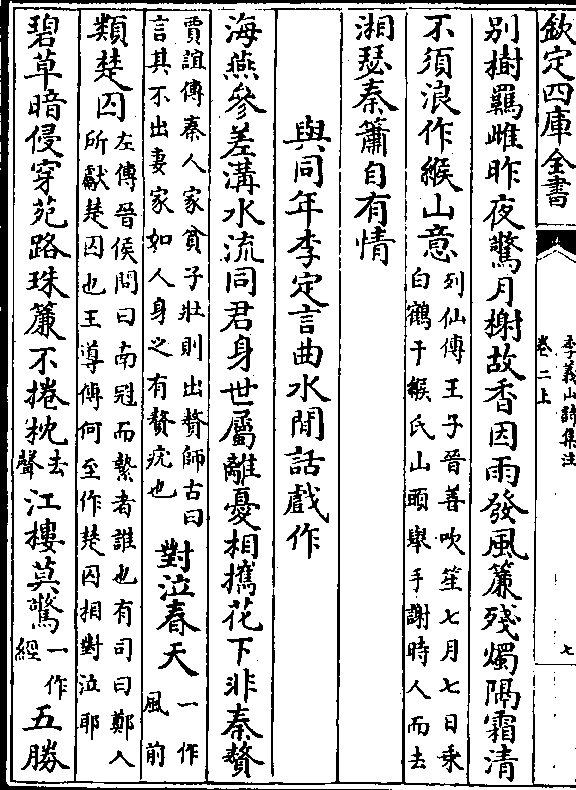 欽定四庫全書
李義山詩集注
卷二上
七
別樹羈雌昨夜驚月榭故香因雨發風簾殘燭隔霜清
不須浪作緱山意列仙傳王子晉善吹笙七月七日乗白鶴于緱氏山頭舉手謝時人而去
湘瑟秦簫自有情
與同年李定言曲水閒話戲作
海燕參差溝水流同君身世屬離憂相攜花下非秦贅
賈誼傳秦人家貧子壯則出贅師古曰言其不出妻家如人身之有贅疣也對泣春天一作風前
類楚囚左傳晉侯問曰南冠而縶者誰也有司曰鄭人所獻楚囚也王導傳何至作楚囚相對泣耶
碧草暗侵穿苑路珠簾不捲枕去聲江樓莫驚一作經五勝